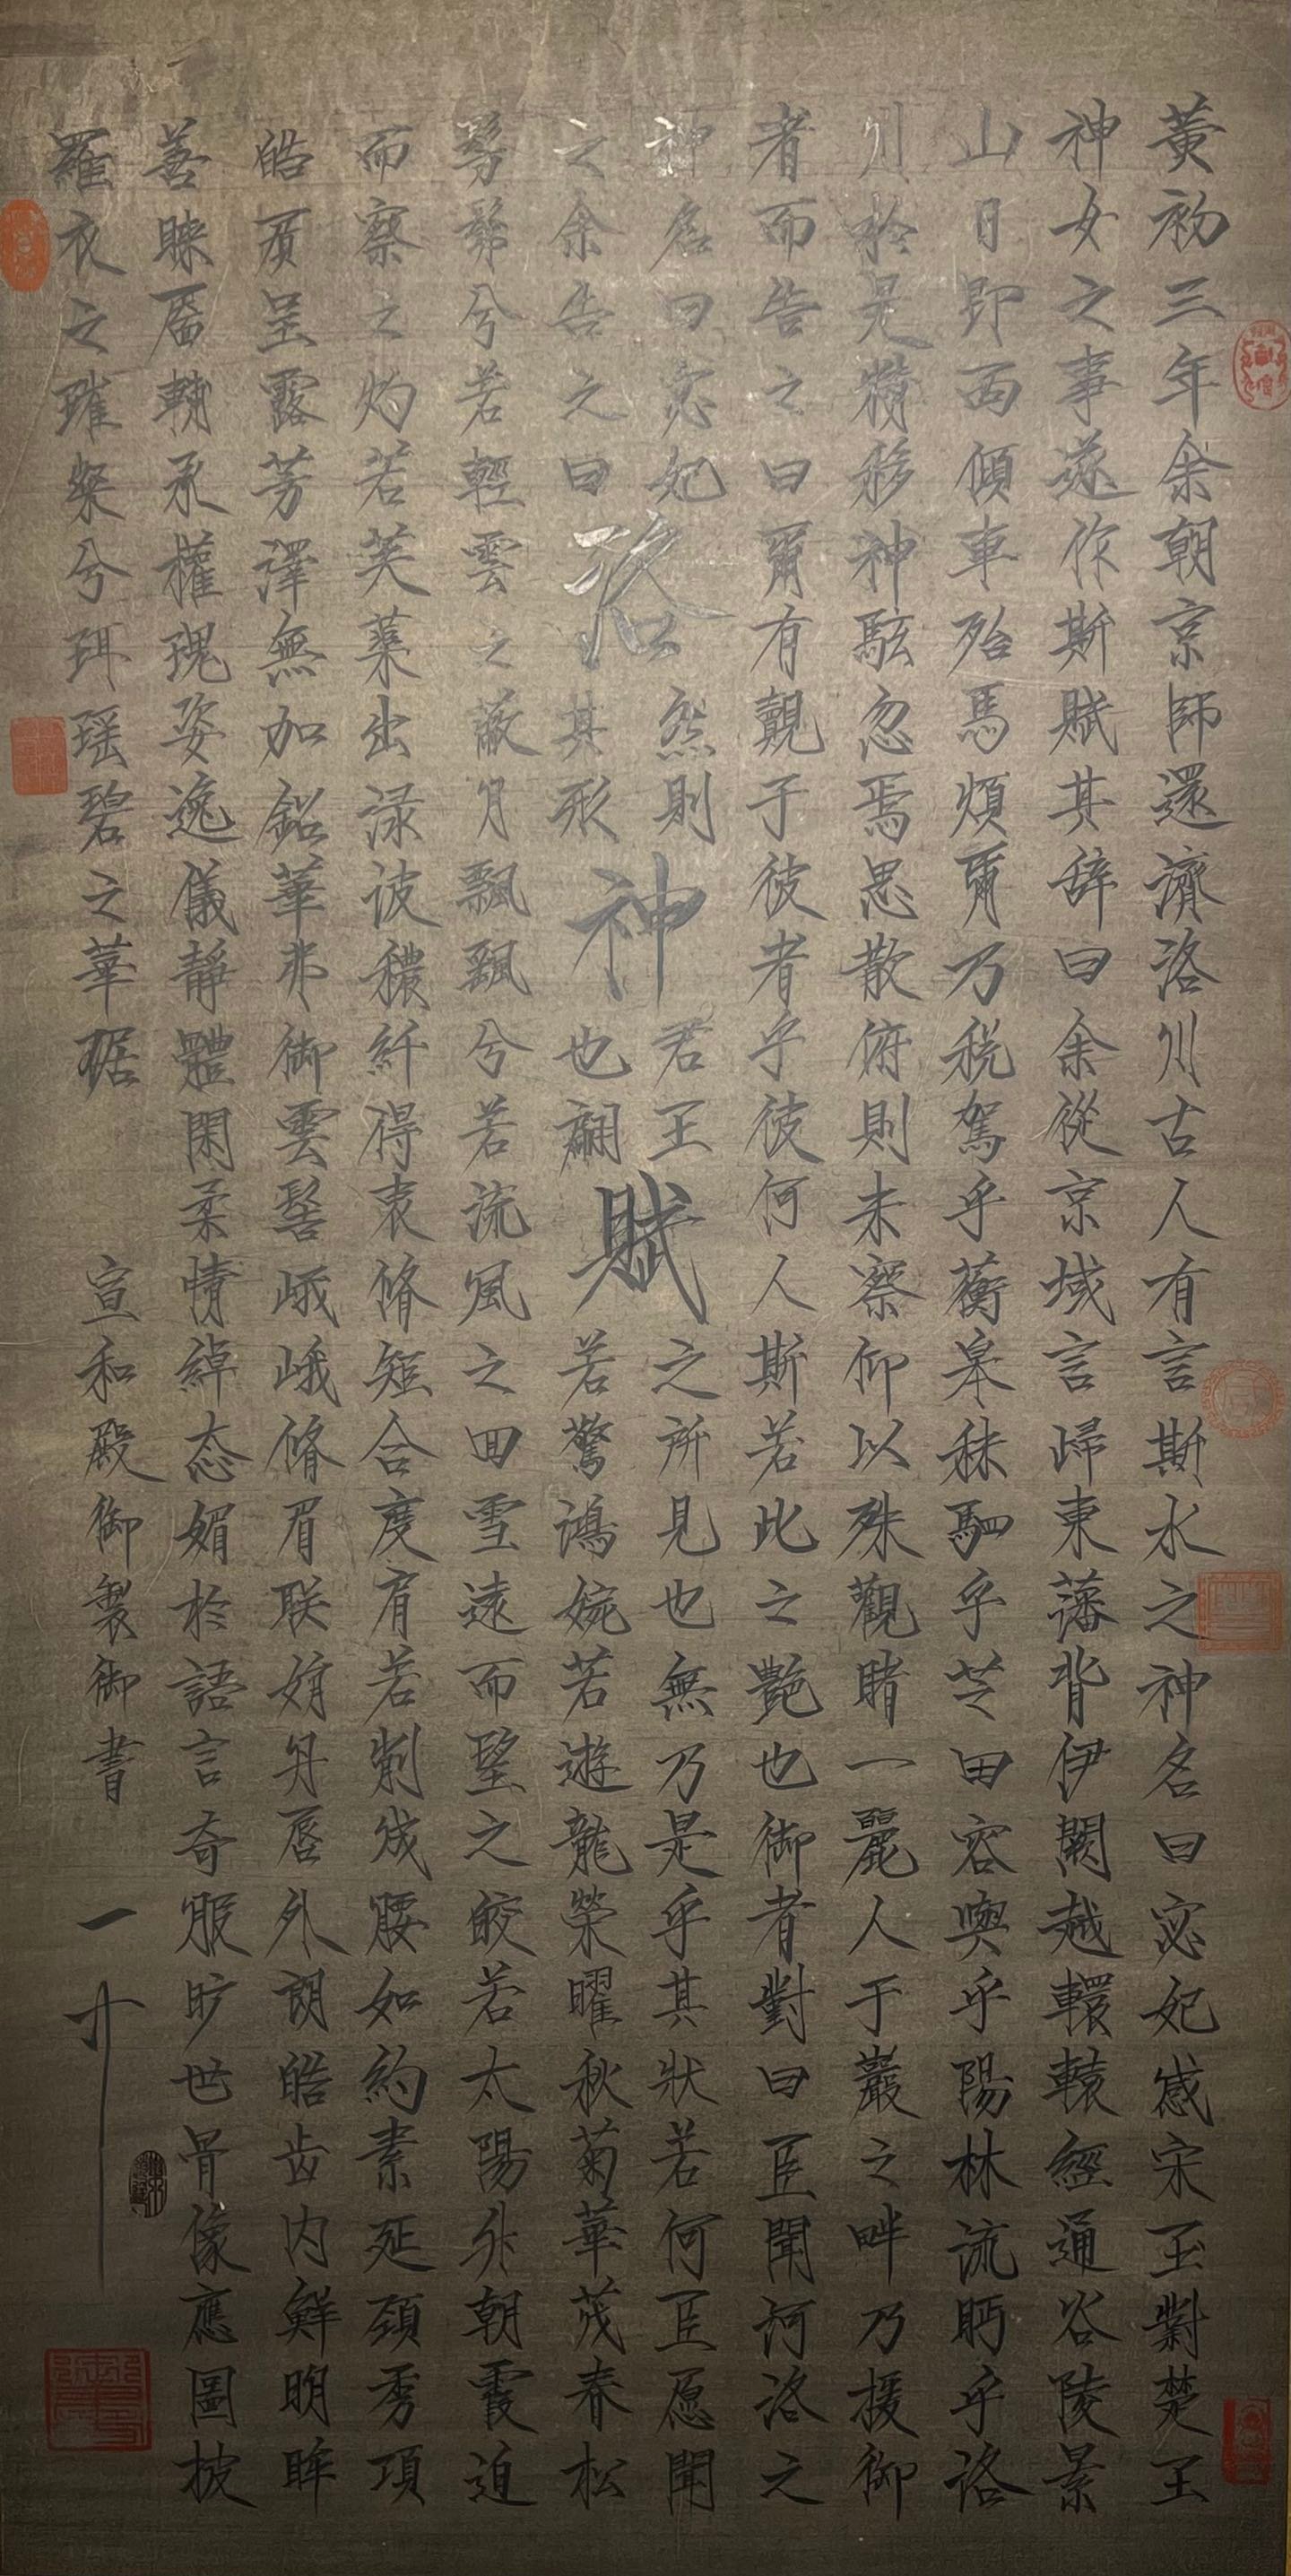 黃初三年余朝京師還濟洛川古人有言斯水之神名曰宓妃感宋玉對楚王
神女之事遂作斯賦其辞曰余從京域言歸東藩背伊闕越轘轅經通谷陵景
山日即西傾車殆馬煩爾乃税駕乎蘅皋秣駟乎芝田容與乎陽林流眄乎洛
川於是精移神駭忽焉思散俯則未察仰以殊觀睹一麗人于巖之畔乃援御
者而告之曰爾有覿于彼者乎彼何人斯若此之艷也御者對曰臣聞河洛之
神名曰宓妃然則君王之所見也無乃是乎其狀若何臣愿聞
洛神賦
之余告之曰其形也翩若驚鴻婉若遊龍榮曜秋菊華茂春松
髣髴兮若輕雲之蔽月飄飄兮若流風之回雪遠而望之皎若太陽升朝霞迫
而察之灼若芙蕖出淥波穠纤得衷脩短合度肩若削成腰如約素延頸秀項
皓質呈露芳澤無加鉛華弗御雲髻峨峨脩眉联娟丹唇外朗皓齿内鮮明眸
善睐靥輔承權瑰姿逸儀靜體閑柔情綽态媚於語言奇服旷世骨像應圖披
羅衣之璀粲兮珥瑶碧之華琚
宣和殿御製御書